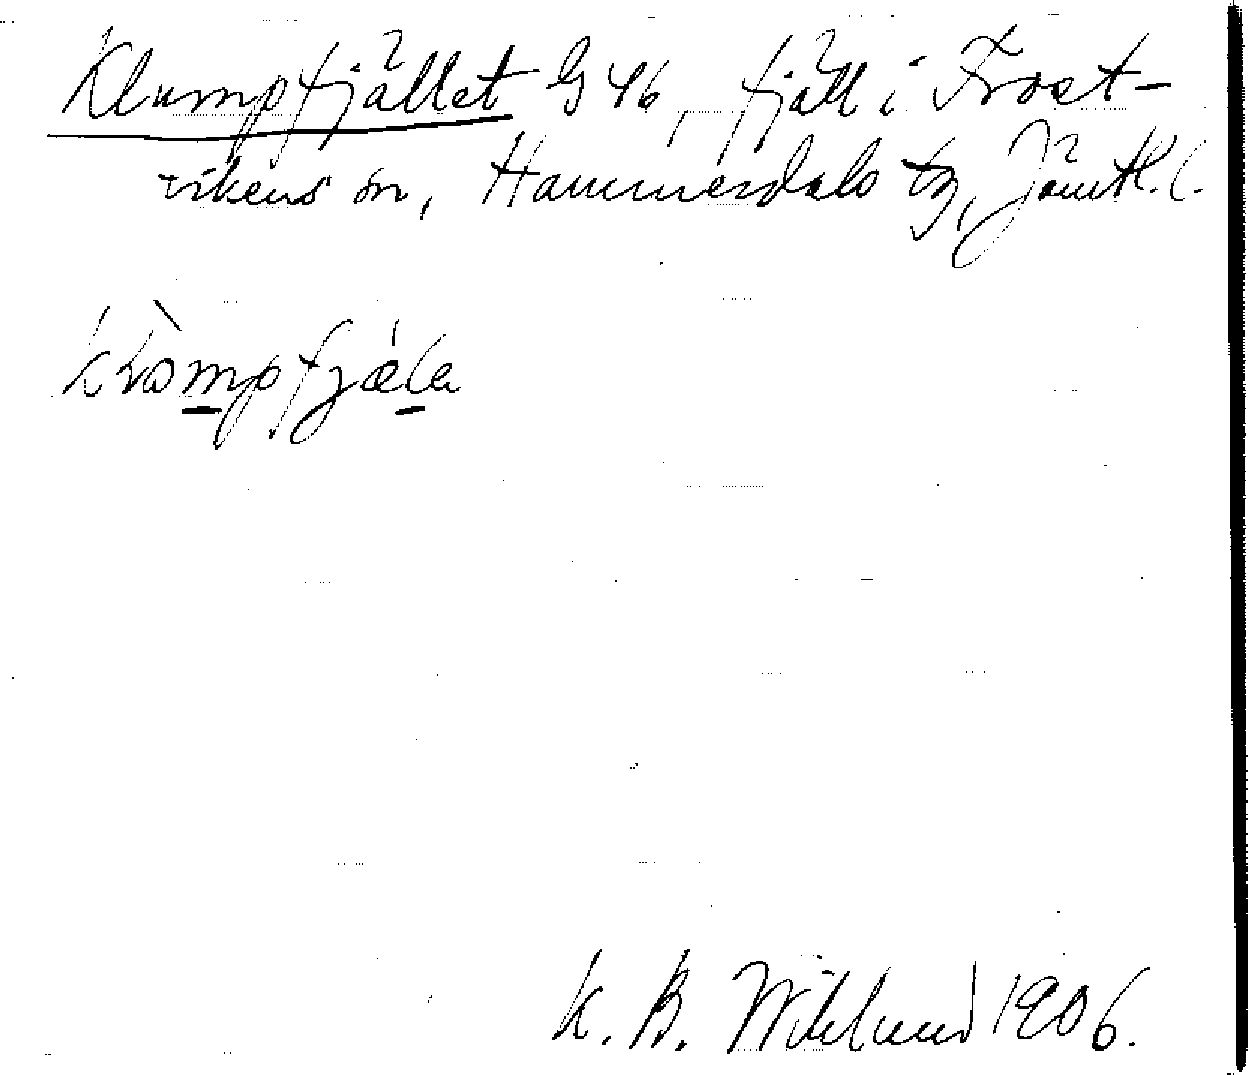 Klumpfjället G 46, fjäll i Frost-
vikens sn, Hammerdals tg, Jämtl. l.
klòmpfjæ̀la
K. B. Wiklund 1906.